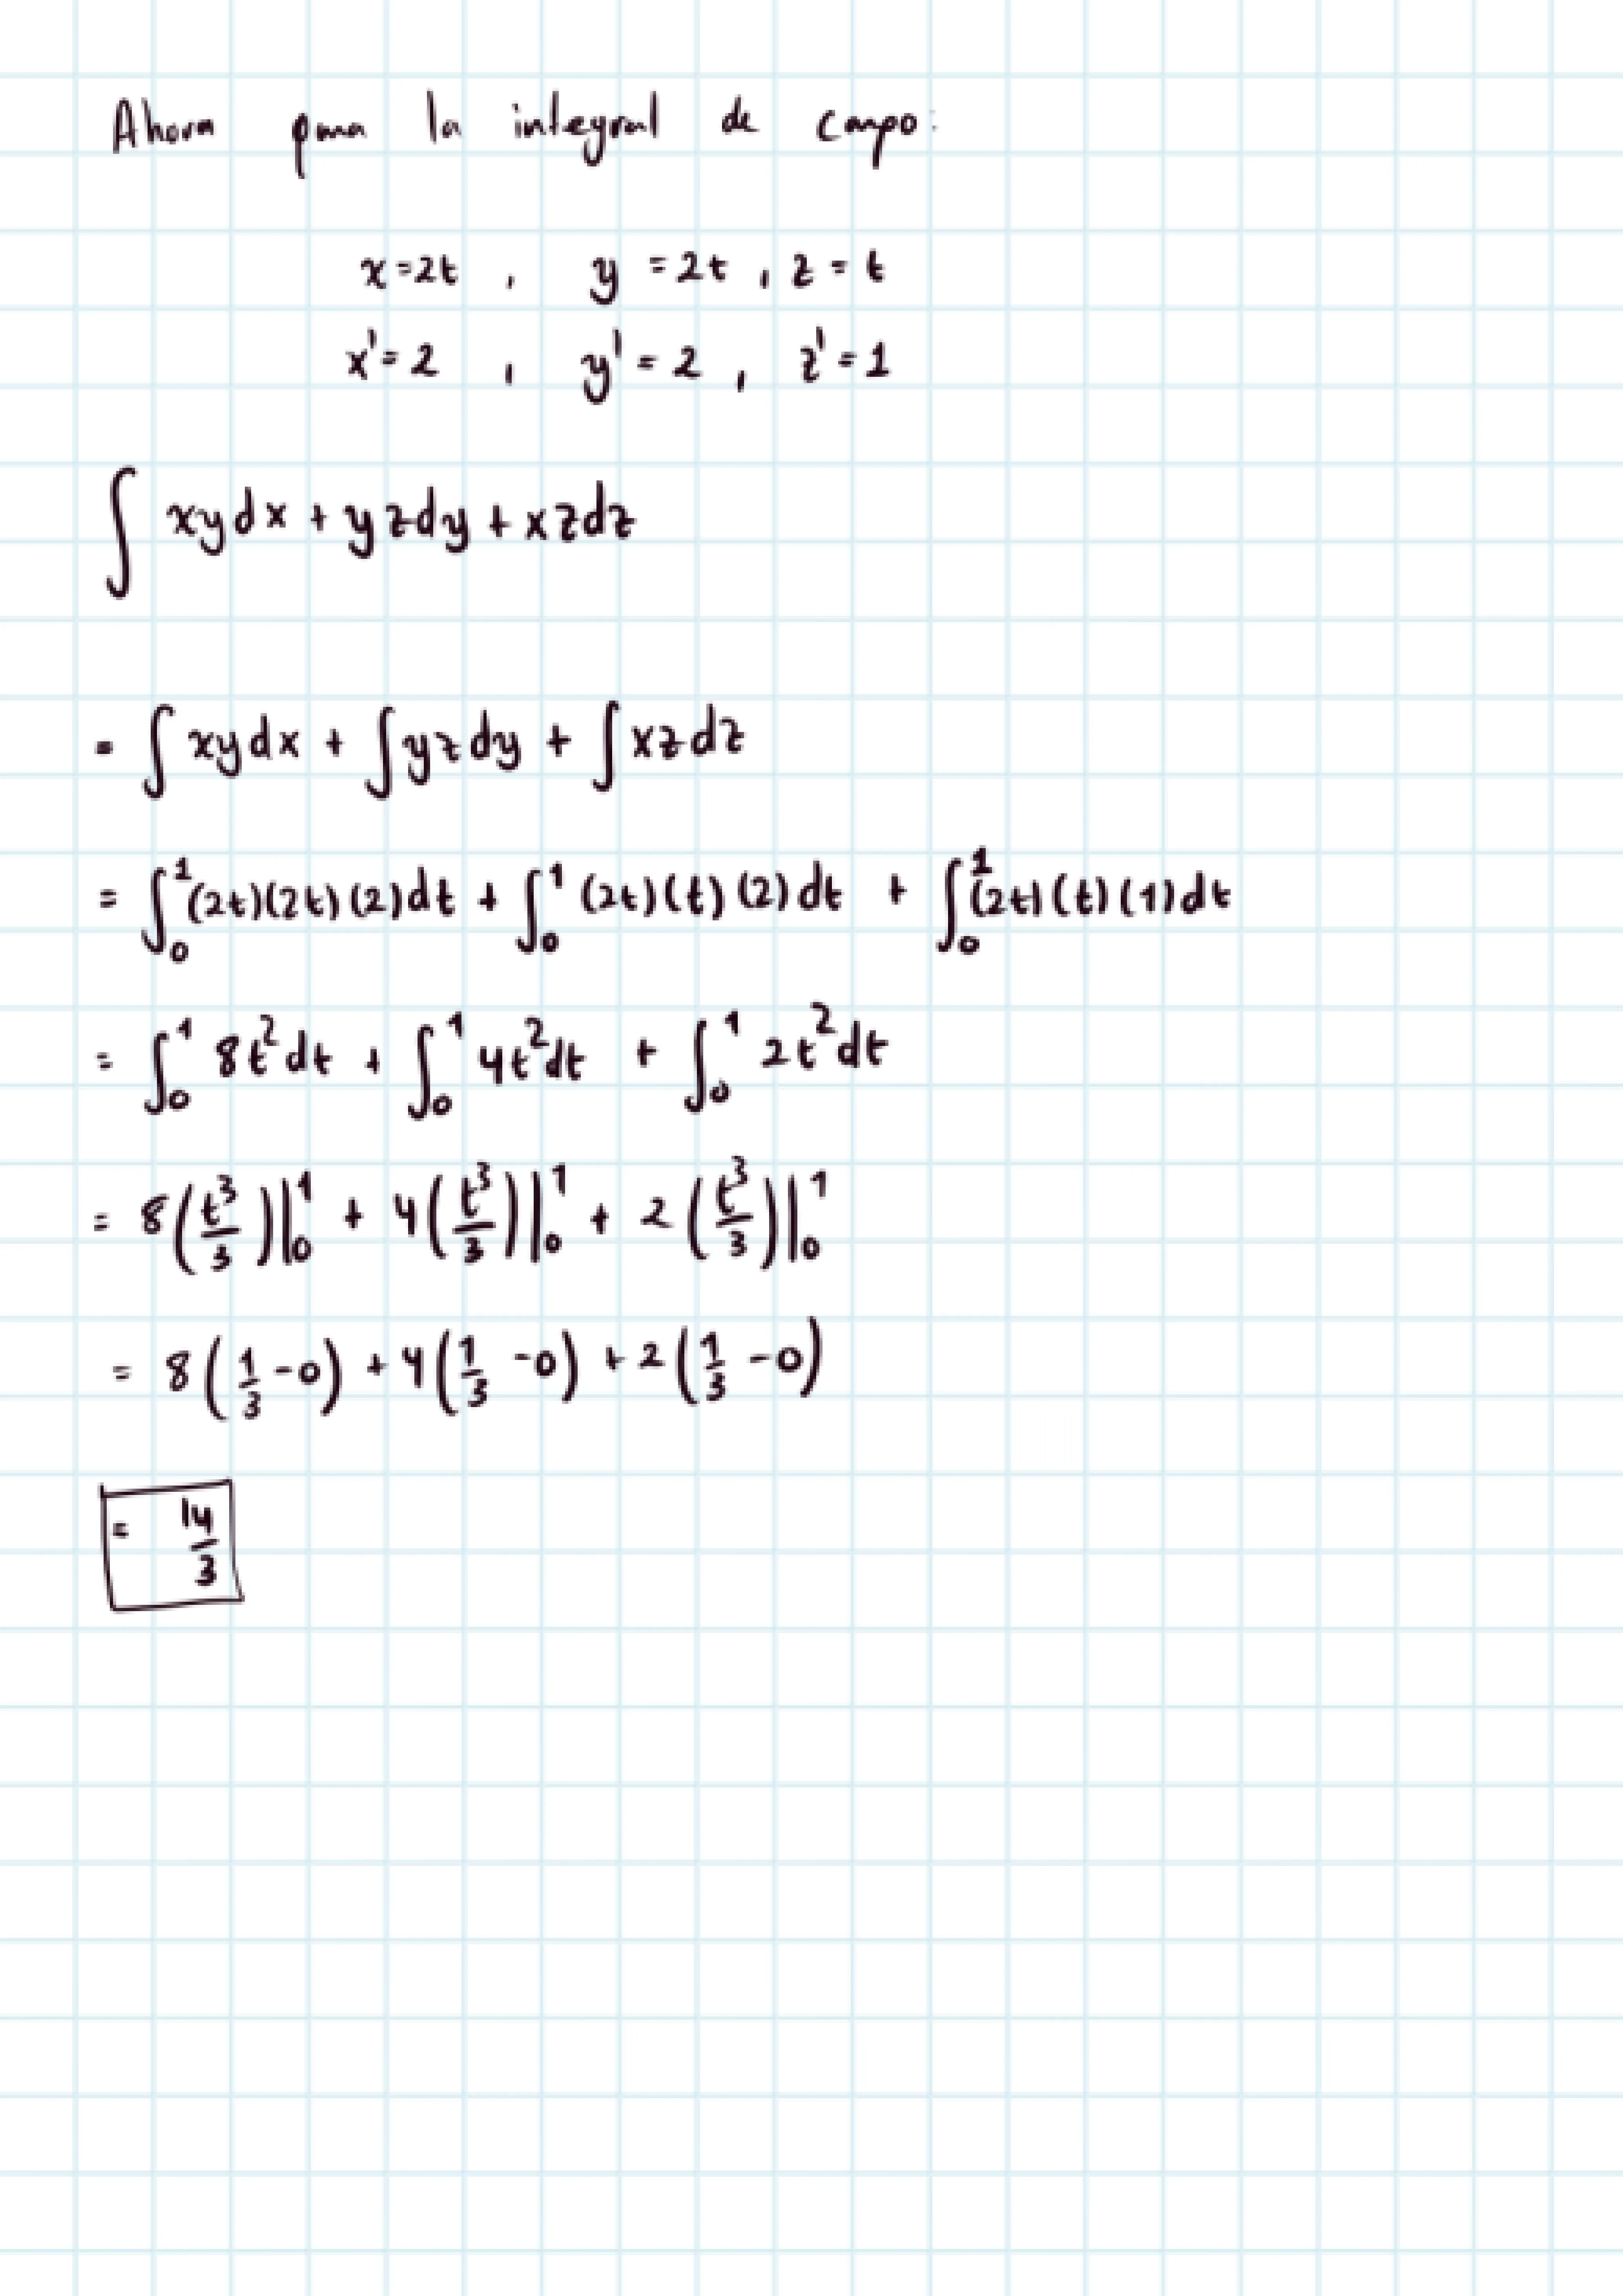 Ahora para la integral de campo:
x=2t , y =2t , z = t
x'=2 , y'=2 , z'=1
∫ xydx + yzdy + xzdz
= ∫ xydx + ∫ yzdy + ∫ xzdz
= ∫₀¹ (2t)(2t)(2)dt + ∫₀¹ (2t)(t)(2)dt + ∫₀¹ (2t)(t)(1)dt
= ∫₀¹ 8t²dt + ∫₀¹ 4t²dt + ∫₀¹ 2t²dt
= 8(t³/3)|₀¹ + 4(t³/3)|₀¹ + 2(t³/3)|₀¹
= 8(1/3 -0) + 4(1/3 -0) + 2(1/3 -0)
= 14/3